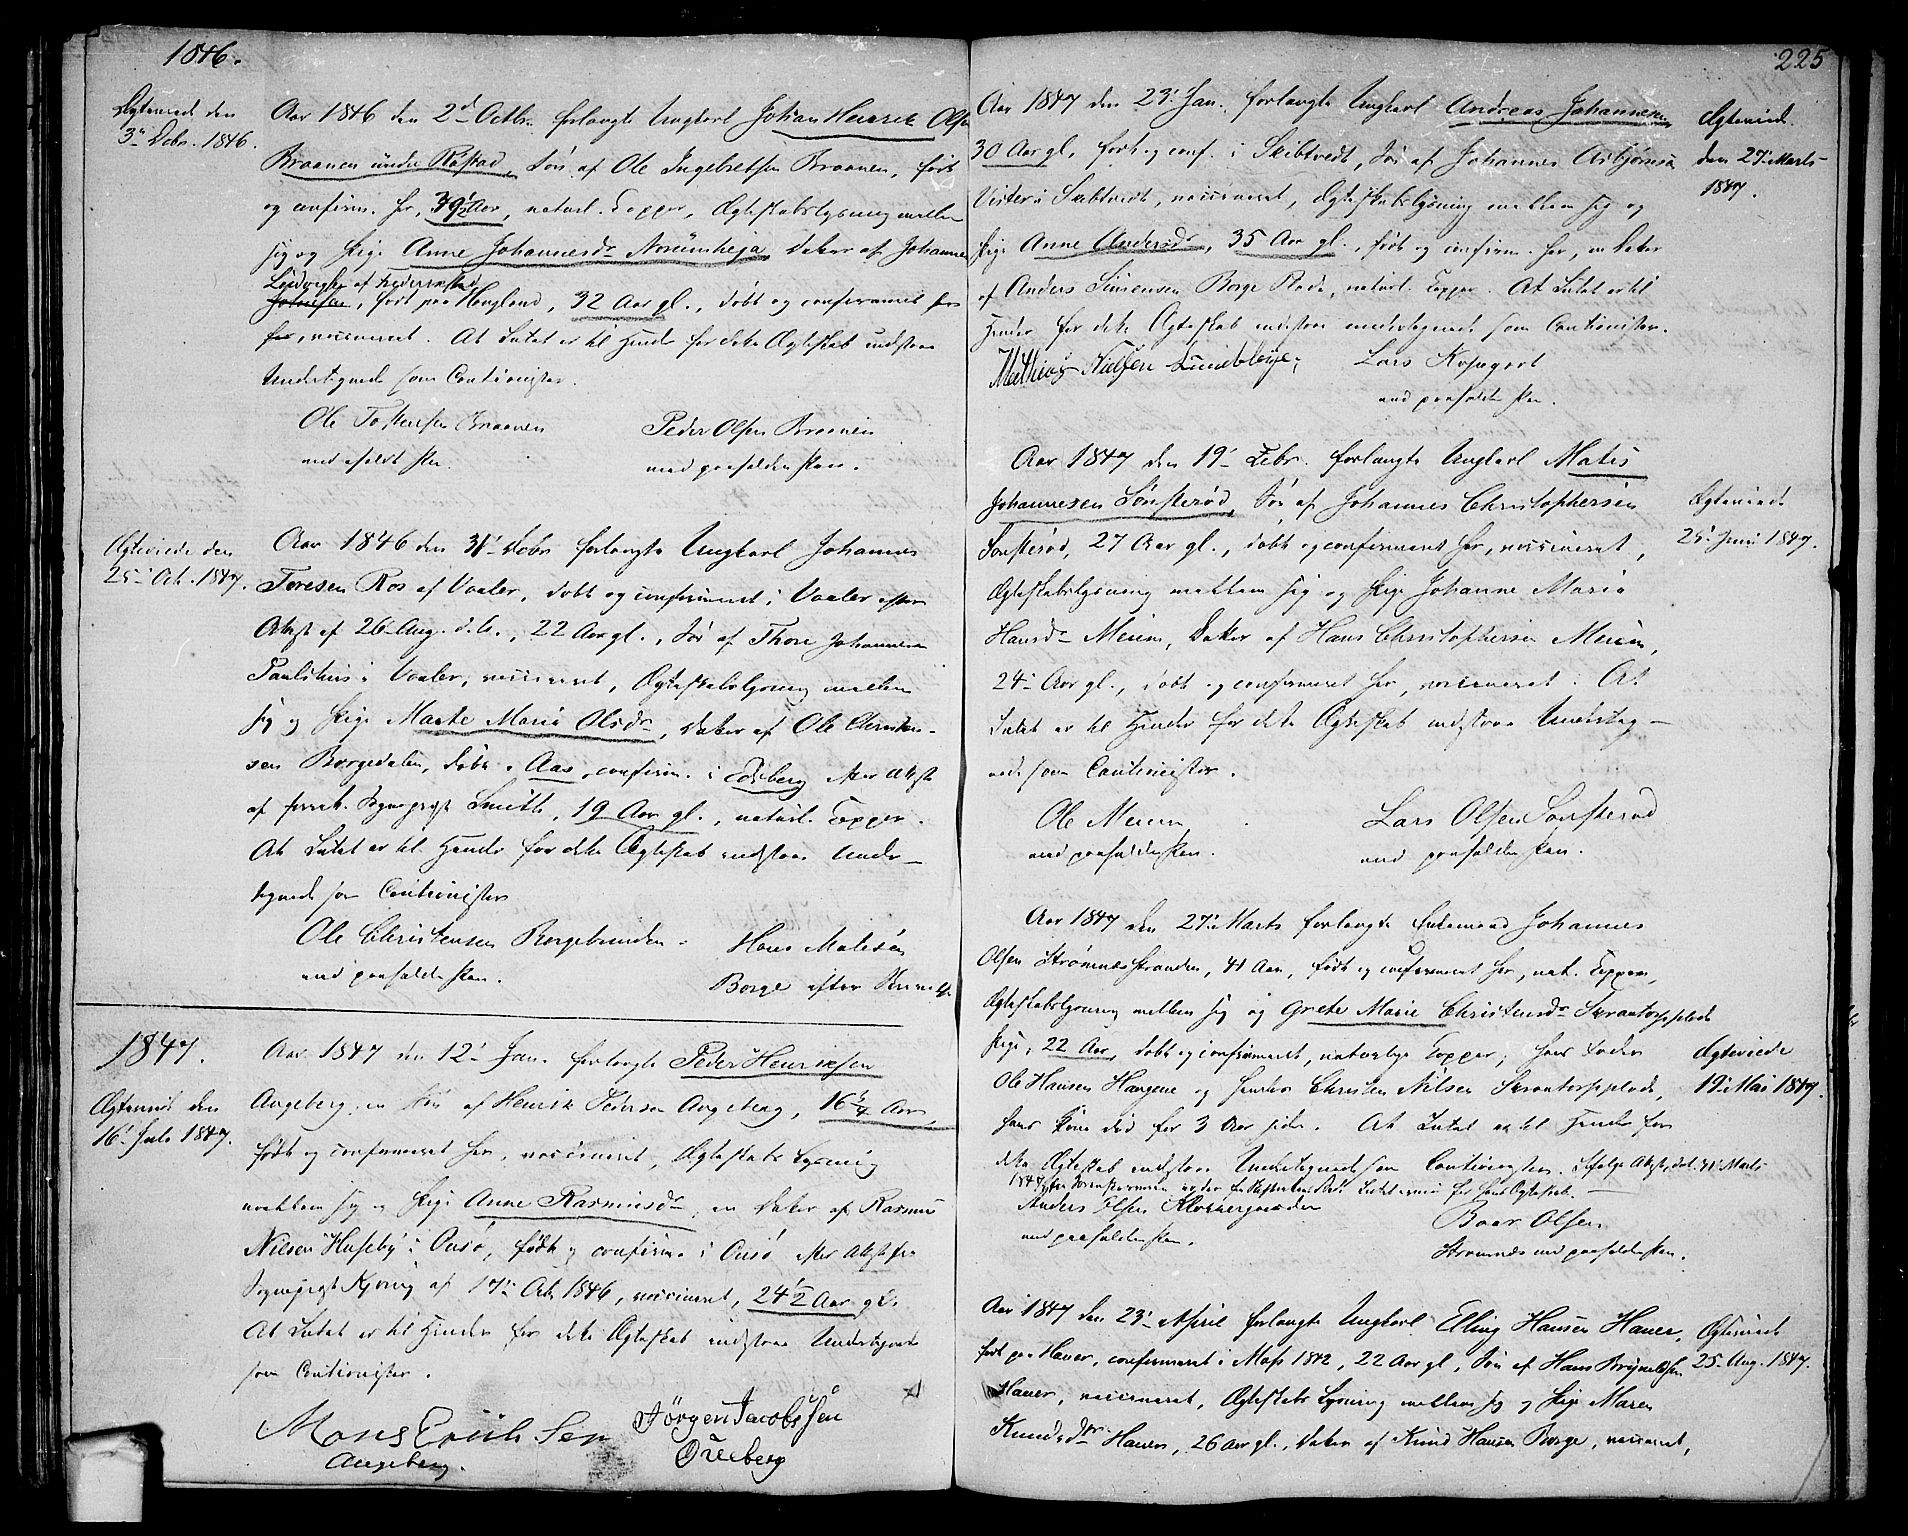 1846.
Ægteviede den
3n Debr. 1846.
Aar 1846 den 2d Octbr. forlangte Ungkarl Johan Henrik Olsen
Braanen under Rostad, Søn af Ole Ingebretsen Braanen, født
og confirm. her, 39½ Aar, naturl. Kopper, Ægteskabslysning mellem
sig og Pige Anne Johannesdr Norumheja Datter af Johannes
Ludvigsen af Frederikstad
født paa Haugland, 32 Aar gl., døbt og confirmeret
her, vaccineret. At Intet er til Hinder for dette Ægteskab indstaae
Undertegnede som Cautionister.
Ole Tostensen Braanen
med paaholden Pen.
Peder Olsen Braanen
med paaholden Pen.
Ægteviede den
25de Oct. 1847.
Aar 1846 den 31' Debr forlangte Ungkarl Johannes
Toresen Ros af Vaaler, døbt og confirmeret i Vaaler efter
Attest af 26 Aug. d. A., 22 Aar gl., Søn af Thore Johannesen
i Vaaler, vaccineret, Ægteskabslysning mellem
sig og Pige Marte Maria Olsdr, Datter af Ole Christen-
sen Borgedalen, døbt i Aas, confirm. i Edsberg efter Attest
af Sognepræst Smith, 19 Aar gl., naturl. Kopper.
At Intet er til Hinder for dette Ægteskab indstaae Under-
tegnede som Cautionister
Ole Christensen Borgebunden
med paaholden Pen.
Hans Matisen
Borge
1847.
Ægteviede den
16' Juli 1847.
Aar 1847 den 12' Jan. forlangte Peder Henriksen
Augeberg, en Søn af Henrik Pedersen Augeberg, Aar,
født og confirmeret her, vaccineret, Ægteskabs Lysning
mellem sig og Pige Anne Rasmusdr, en Datter af Rasmus
Nilsen Huseby i Onsø, født og confirm. i Onsø efter Attest fra
Sognepræst Kjønig af 17' Oct. 1846, vaccineret, 24½ Aar gl.
At Intet er til Hinder for dette Ægteskab indstaae Undertegnede
som Cautionister.
Mons Erichsen
Augeberg.
Jørgen Jacobssen
Øreberg
225
Aar 1847 den 23' Jan. forlangte Ungkarl Andreas Johannesen
30 Aar gl., født og conf. i Skibtvedt, Søn af Johannes Asbjørnsen
Vister i Skibtvedt, vaccineret, Ægteskabslysning mellem sig og
Pige Anne Andersdr, 35 Aar gl., født og confirm. her, en Datter
af Anders Simensen Borge Røde, naturl. Kopper. At Intet er til
Hinder for dette Ægteskab indstaae undertegnede som Cautionister.
Mathias Nielsen Lundebye;
Lars Kopegort
med paaholden Pen.
Ægteviede
den 27' Marts
1847.
Aar 1847 den 19' Febr. forlangte Ungkarl Matis
Johannesen Sønsterød, Søn af Johannes Christophersen
Sønsterød, 27 Aar gl., døbt og confirmeret her, vaccineret,
Ægteskabslysning mellem sig og Pige Johanne Maria
Hansdr Meium, Datter af Hans Christophersen Meium,
24 Aar gl., døbt og confirmeret her, vaccineret. At
Intet er til Hinder for dette Ægteskab indstaae Underteg-
nede som Cautionister.
Ole Meium
med paaholden Pen.
Lars Olsen Sønsterød
med paaholden Pen.
Ægteviede
25' Juni 1847.
Aar 1847 den 27' Marts forlangte Enkemand Johannes
Olsen Strømnesstranden, 41 Aar, født og confirmeret her, nat. Kopper,
Ægteskabslysning mellem sig og Grete Marie Christensdr Skrantorpplads
Pige, 22 Aar, døbt og confirmeret, naturlige Kopper, hans Fader
Ole Hansen Haugene og hendes Christen Nilsen Skrantorpplads,
hans Kone død for 3 Aar siden. At Intet er til Hinder for
dette Ægteskab indstaae Undertegnede som Cautionister. Ifølge Attest, dat. 31' Marts
1847 Intet er i for hans Ægteskab.
Anders Olsen
med paaholden Pen.
Baar Olsen
Strømnes med paaholden Pen.
Ægteviede
19' Mai 1847.
Aar 1847 den 23' April forlangte Ungkarl Elling Hansen Hauer,
født paa Hauer, confirmeret i Moss 1842, 22 Aar gl., Søn af Hans Brynildsen
Hauer, vaccineret, Ægteskabs Lysning mellem sig og Pige Maren
Knudsdtr Hauer, 26 Aar gl., Datter af Knud Hansen Borge, vaccineret,
Ægteviede
25' Aug. 1847.